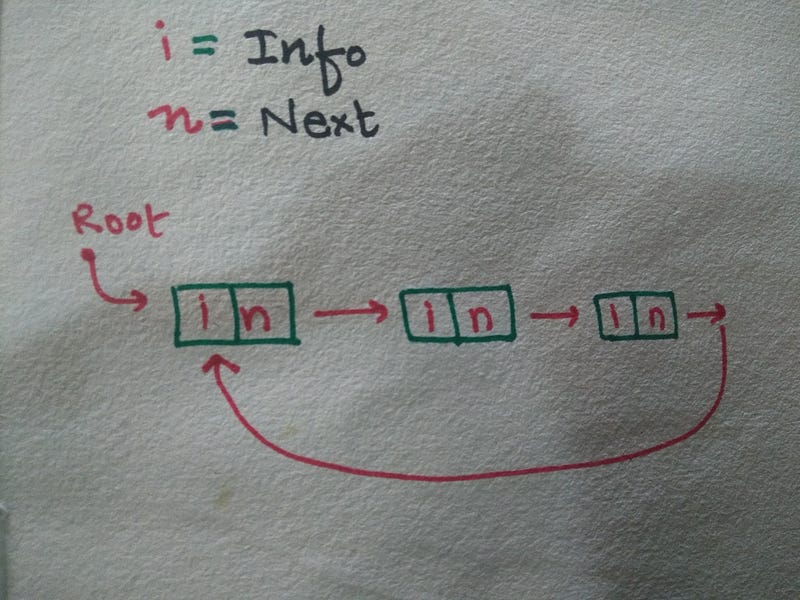 i = Info
n = Next
Root
i n i n i n